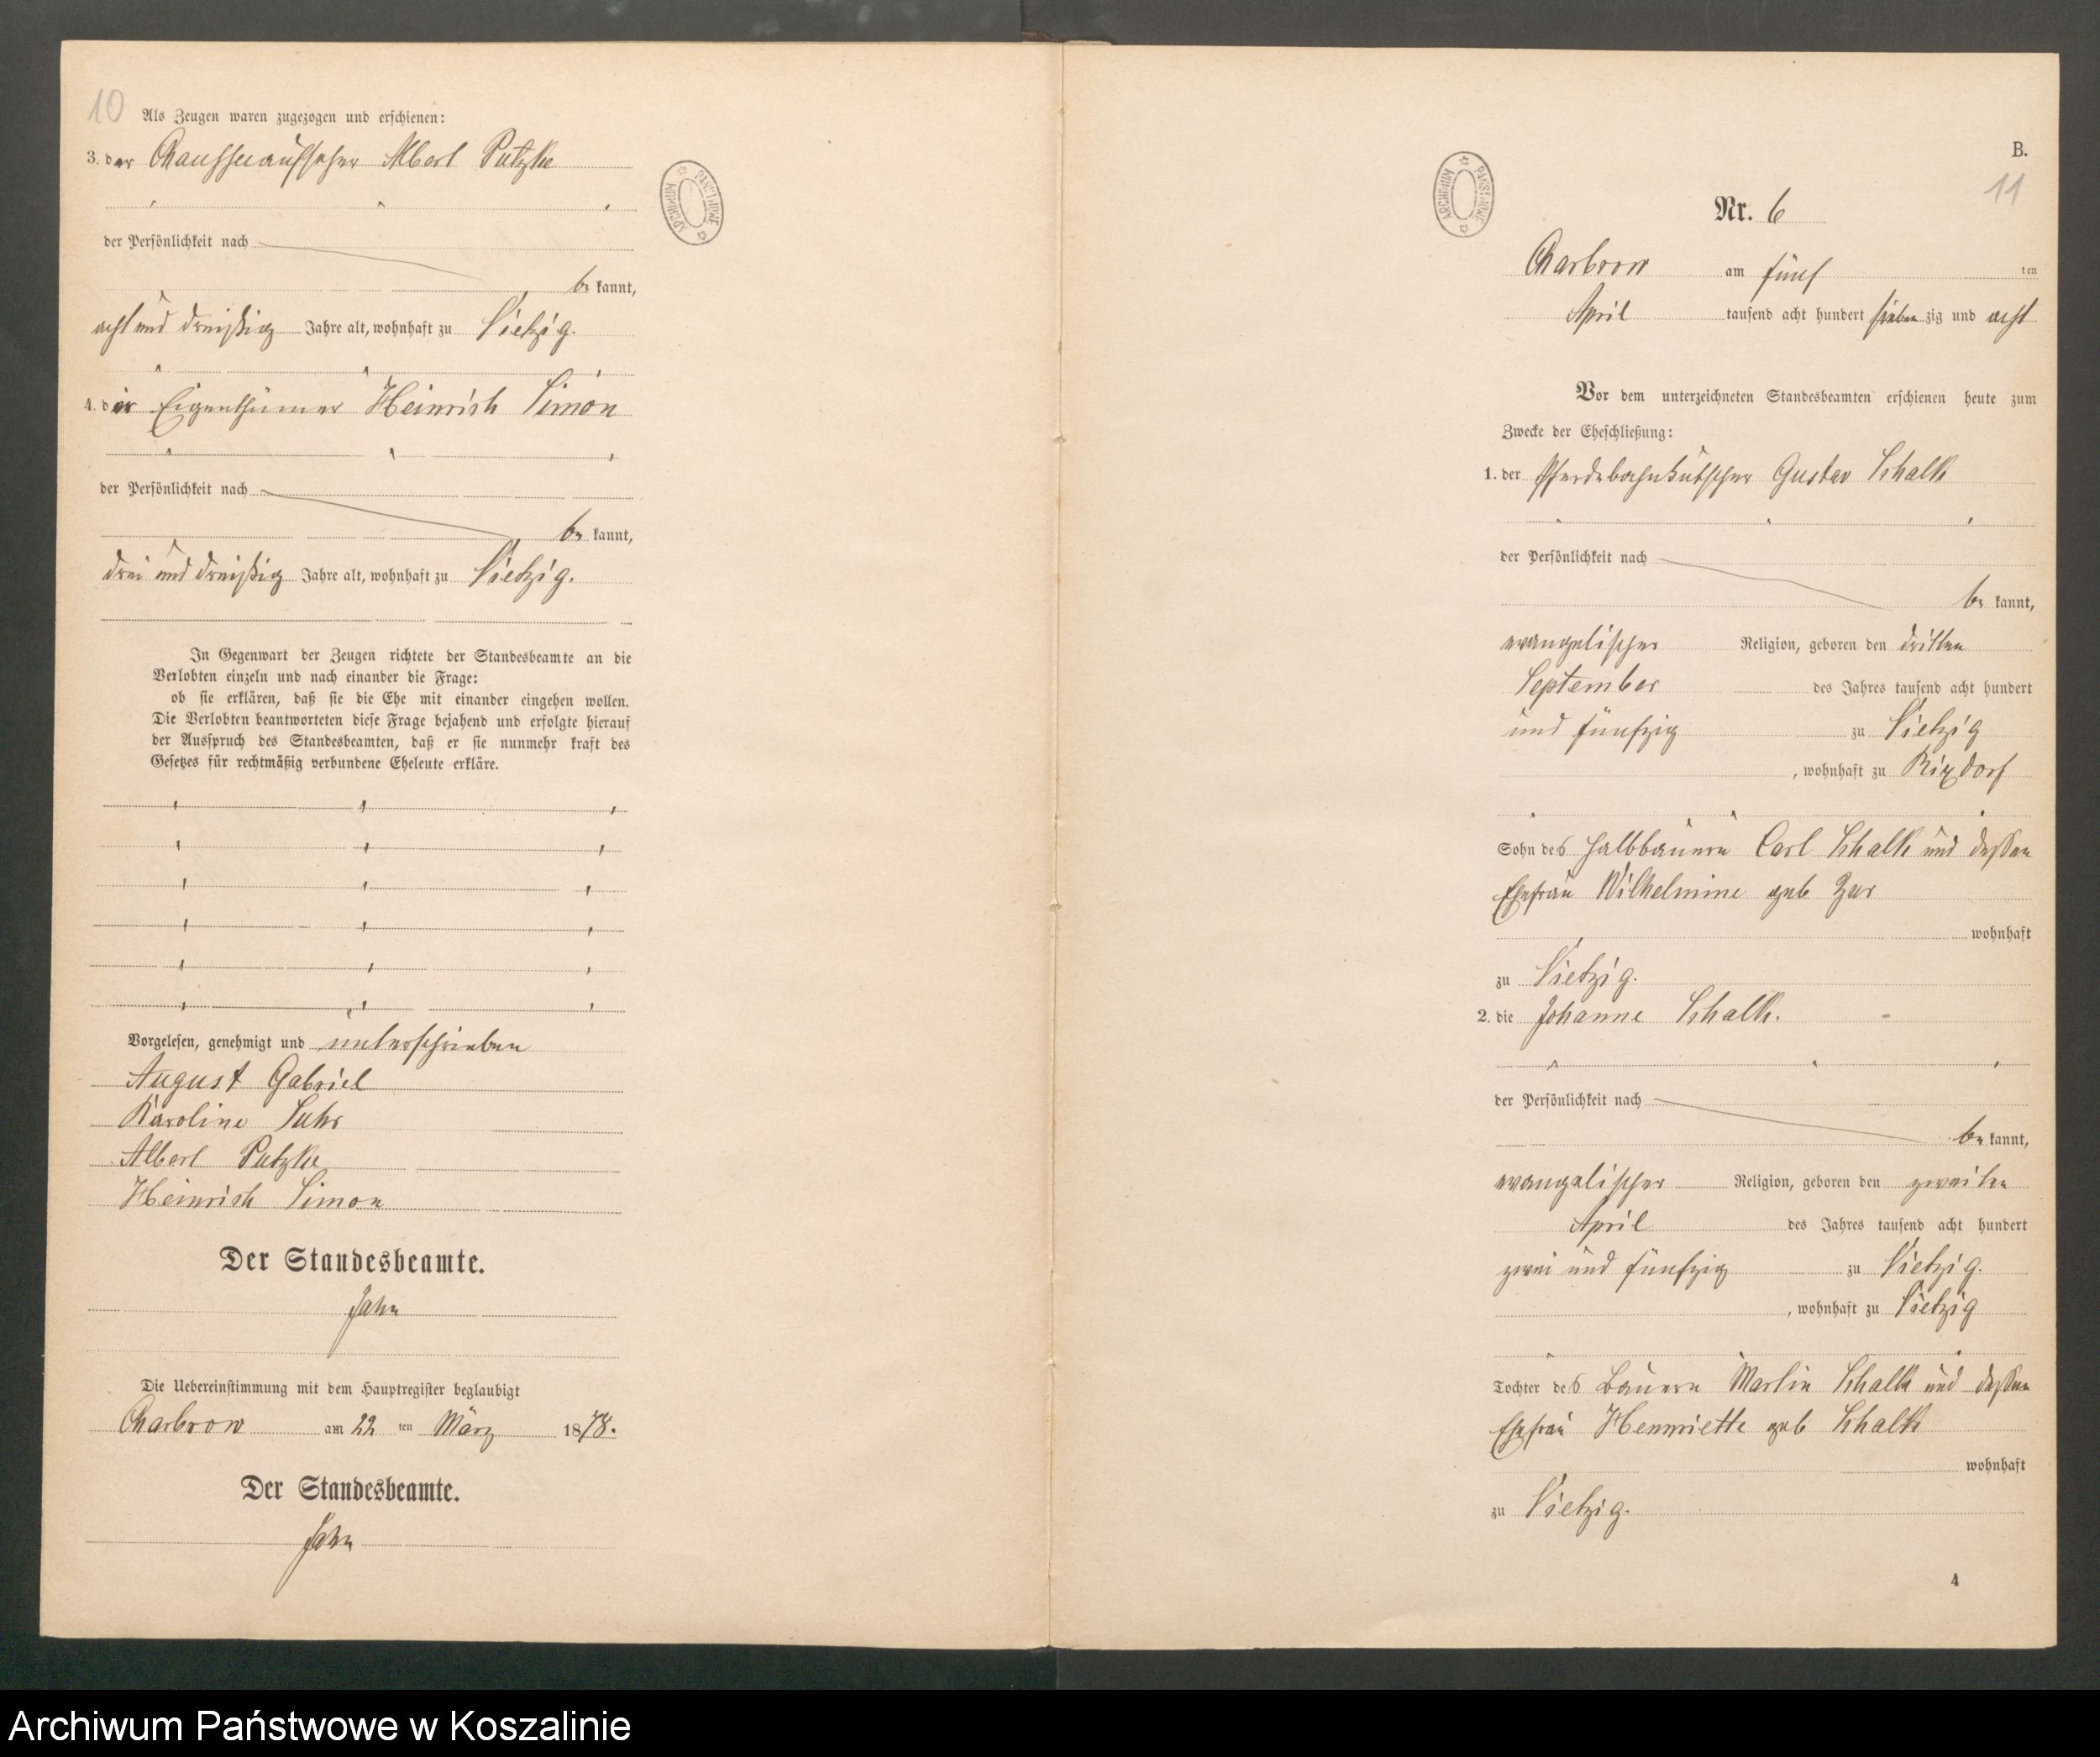 10
Als Zeugen waren zugezogen und erschienen:
3. der Chausseeaufseher Albert Putzke
der Persönlichkeit nach
be kannt,
acht und dreißig Jahre alt, wohnhaft zu Vietzig.
4. der Eigenthümer Heinrich Simon
der Persönlichkeit nach
be kannt,
drei und dreißig Jahre alt, wohnhaft zu Vietzig.
In Gegenwart der Zeugen richtete der Standesbeamte an die
Verlobten einzeln und nach einander die Frage:
ob sie erklären, daß sie die Ehe mit einander eingehen wollen.
Die Verlobten beantworteten diese Frage bejahend und erfolgte hierauf
der Ausspruch des Standesbeamten, daß er sie nunmehr kraft des
Gesetzes für rechtmäßig verbundene Eheleute erkläre.
Vorgelesen, genehmigt und unterschrieben
August Gabriel
Karoline Suhr
Albert Putzke
Heinrich Simon
Der Standesbeamte.
Jahn
Die Uebereinstimmung mit dem Hauptregister beglaubigt
Charbrow am 22 ten März 1878.
Der Standesbeamte.
Jahn
ARCHIWUM PAŃSTWOWE
ARCHIWUM PAŃSTWOWE
B.
11
Nr. 6
Charbrow am fünf ten
April tausend acht hundert sieben zig und acht
Vor dem unterzeichneten Standesbeamten erschienen heute zum
Zwecke der Eheschließung:
1. der Pferdebahnkutscher Gustav Schalk
der Persönlichkeit nach
be kannt,
evangelischer Religion, geboren den dritten
September des Jahres tausend acht hundert
und fünfzig zu Vietzig
, wohnhaft zu Rixdorf
Sohn des Halbbauern Carl Schalk und dessen
Ehefrau Wilhelmine geb Zar
wohnhaft
zu Vietzig.
2. die Johanne Schalk.
der Persönlichkeit nach
be kannt,
evangelischer Religion, geboren den zweiten
April des Jahres tausend acht hundert
zwei und fünfzig zu Vietzig.
, wohnhaft zu Vietzig
Tochter des Bauern Martin Schalk und dessen
Ehefrau Hennriette geb Schalk
wohnhaft
zu Vietzig.
4
Archiwum Państwowe w Koszalinie